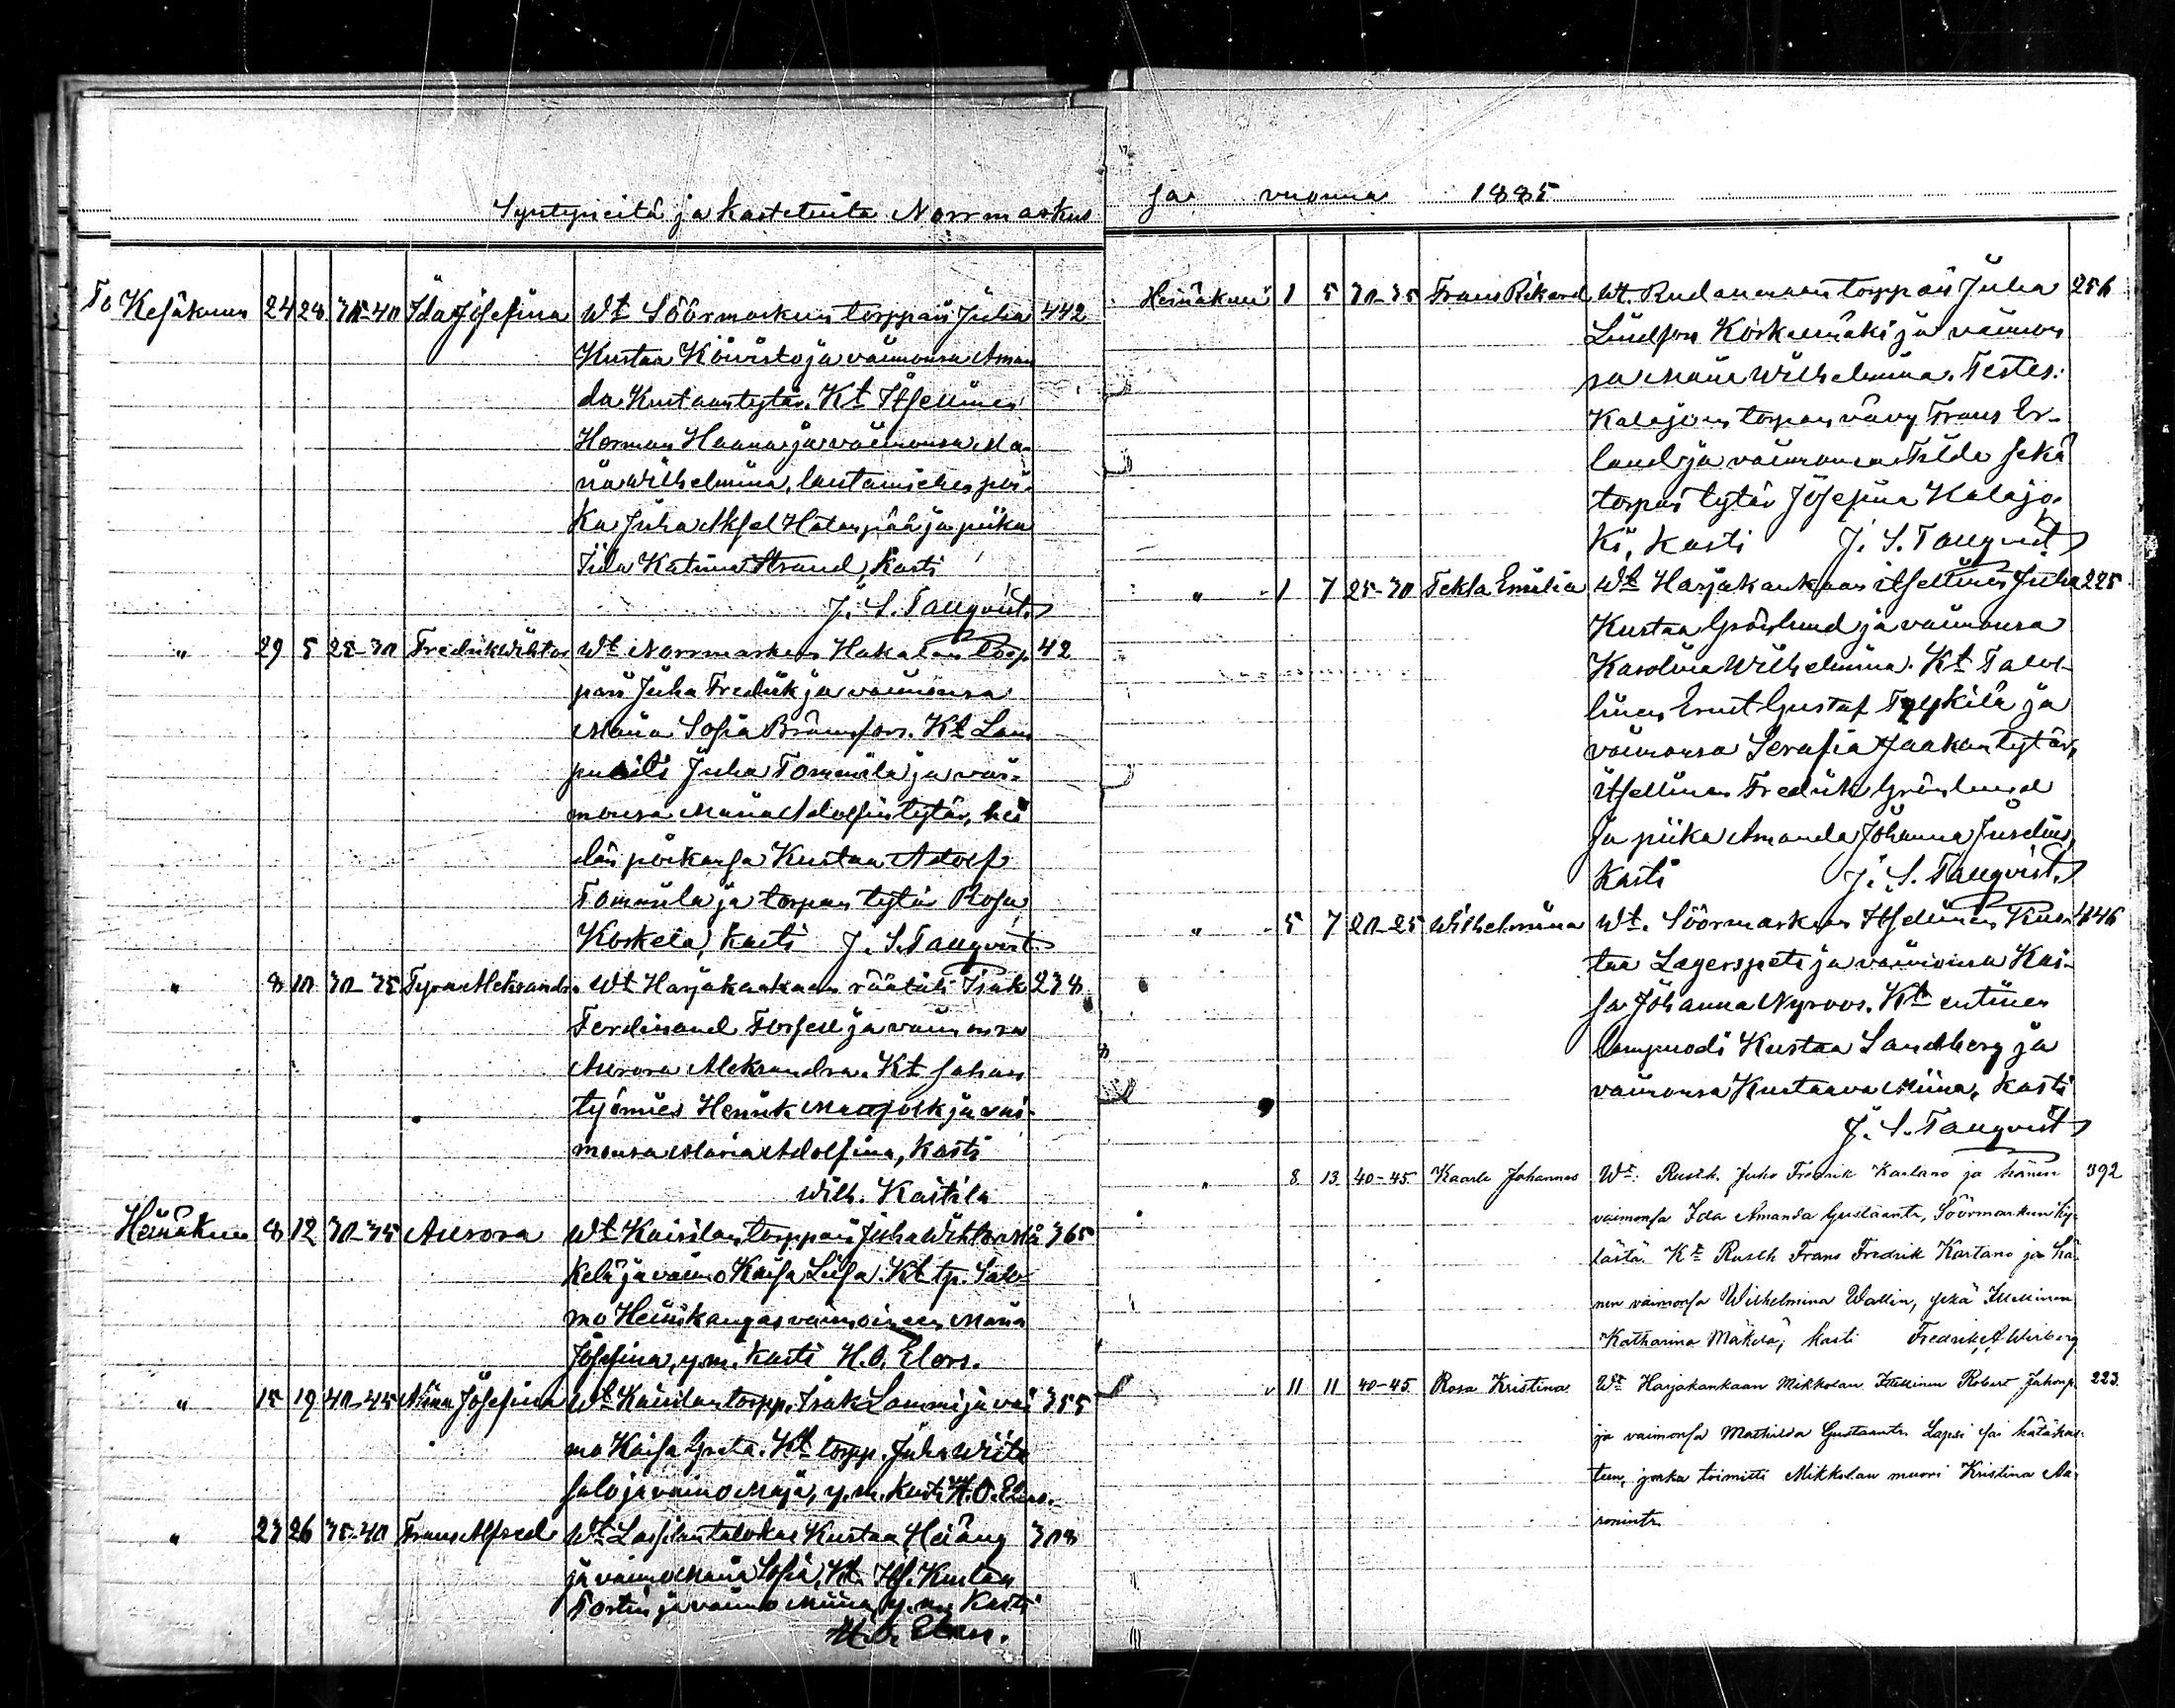 Syntyneitä ja kastetuita Norrmarkus
To Kesäkuun 24 28 35-40 Ida Josefina Wt Söörmarkun torppari Juha 442
Kustaa Koivisto ja vaimonsa Aman
da Kustaantytär. Kt Itsellinen
Herman Haana ja vaimonsa Ma-
ria Wilhelmina, lautamiehen poi-
ka Juha Aksel Hatanpää ja piika
Iida Katrina Strand, kasti
J. S. Tanqvist
" 29 5 25-30 Fredrik Wihtor Wt Norrmarkun Hakalan torp 42
pari Juha Fredrik ja vaimonsa
Maria Sofia Brunfors. Kt Lam
puoti Juha Tommila ja vai-
monsa Maria Adolfintytär, hei
dän poikansa Kustaa Adolf
Tommila ja torpan tytär Rosa
Koskela, kasti J. S. Tanqvist
" 8 10 30-35 Tyra Aleksandra Wt Harjakankaan räätäli Isak 238
Ferdinand Forsell ja vaimonsa
Aurora Aleksandra. Kt sahan
työmies Henrik ja vai-
monsa Maria Adolfina, kasti
Wilh. Kaitila
Heinäkuu 8 12 30-35 Aurora Wt Kairilan torppari Juha Wihtori Mä 365
kelä ja vaimo Kaisa Liisa. Kt tp. Salo
mo Heinikangas vaimoineen Maria
Josefina, y.m. kasti H. O. Elers.
" 15 19 40-45 Niina Josefina Wt Kairilan torpp. Isak Lammi ja vai 355
mo Kaisa Greta. Kt torpp. Juha Wiita
salo ja vaimo Maja, y.m. kasti H. O. Elers.
" 23 26 35-40 Frans Alfred Wt Lassilan talokas Kustaa Haäng 308
ja vaimo Maria Sofia. Kt Its. Kustaa
ja vaimo Miina y.m. kasti
H. O. Elers.
sa vuonna 1885
Heinäkuu 1 5 30-35 Frans Rikard Wt. Rudanmaan torppari Juha 256
Lindfors Koskenmäki ja vaimon
sa Maria Wilhelmina. Testes:
Kalajoen torpan vävy Frans Er-
land ja vaimonsa Tilda sekä
torpan tytär Josefina Kalajo-
ki, kasti J. S. Tanqvist
" 1 7 25-30 Tekla Emilia Wt Harjakankaan itsellinen Juha 225
Kustaa Grönlund ja vaimonsa
Karolina Wilhelmina. Kt Talol-
linen Ernst Gustaf Tyykilä ja
vaimonsa Serafia Jaakontytär,
itsellinen Fredrik Grönlund
ja piika Amanda Johanna Juselius,
kasti J. S. Tanqvist
" 5 7 20-25 Wilhelmiina Wt. Söörmarkun Itsellinen Kus- 446
taa Lagerspets ja vaimonsa Kai-
sa Johanna Nyroos. Kt entinen
lampuodi Kustaa Sandberg ja
vaimonsa Kustaava Miina, kasti
J. S. Tanqvist
" 8 13 40-45 Kaarle Johannes Wt. Rusth. Juho Fredrik Kartano ja hänen 392
vaimonsa Ida Amanda Gustaantr, Söörmarkun ky-
lästä. Kt Rusth Frans Fredrik Kartano ja hä-
nen vaimonsa Wilhelmina Wallin, sekä Itsellinen
Katharina Mäkelä, kasti Fredrik A. Wirberg
" 11 11 40-45 Rosa Kristina Wt Harjakankaan Mikkolan Itsellinen Robert Jakosp. 223
ja vaimonsa Mathilda Gustaantr. Lapsi sai hätäkas-
teen, jonka toimitti Mikkolan muori Kristina Aa-
ronintr.